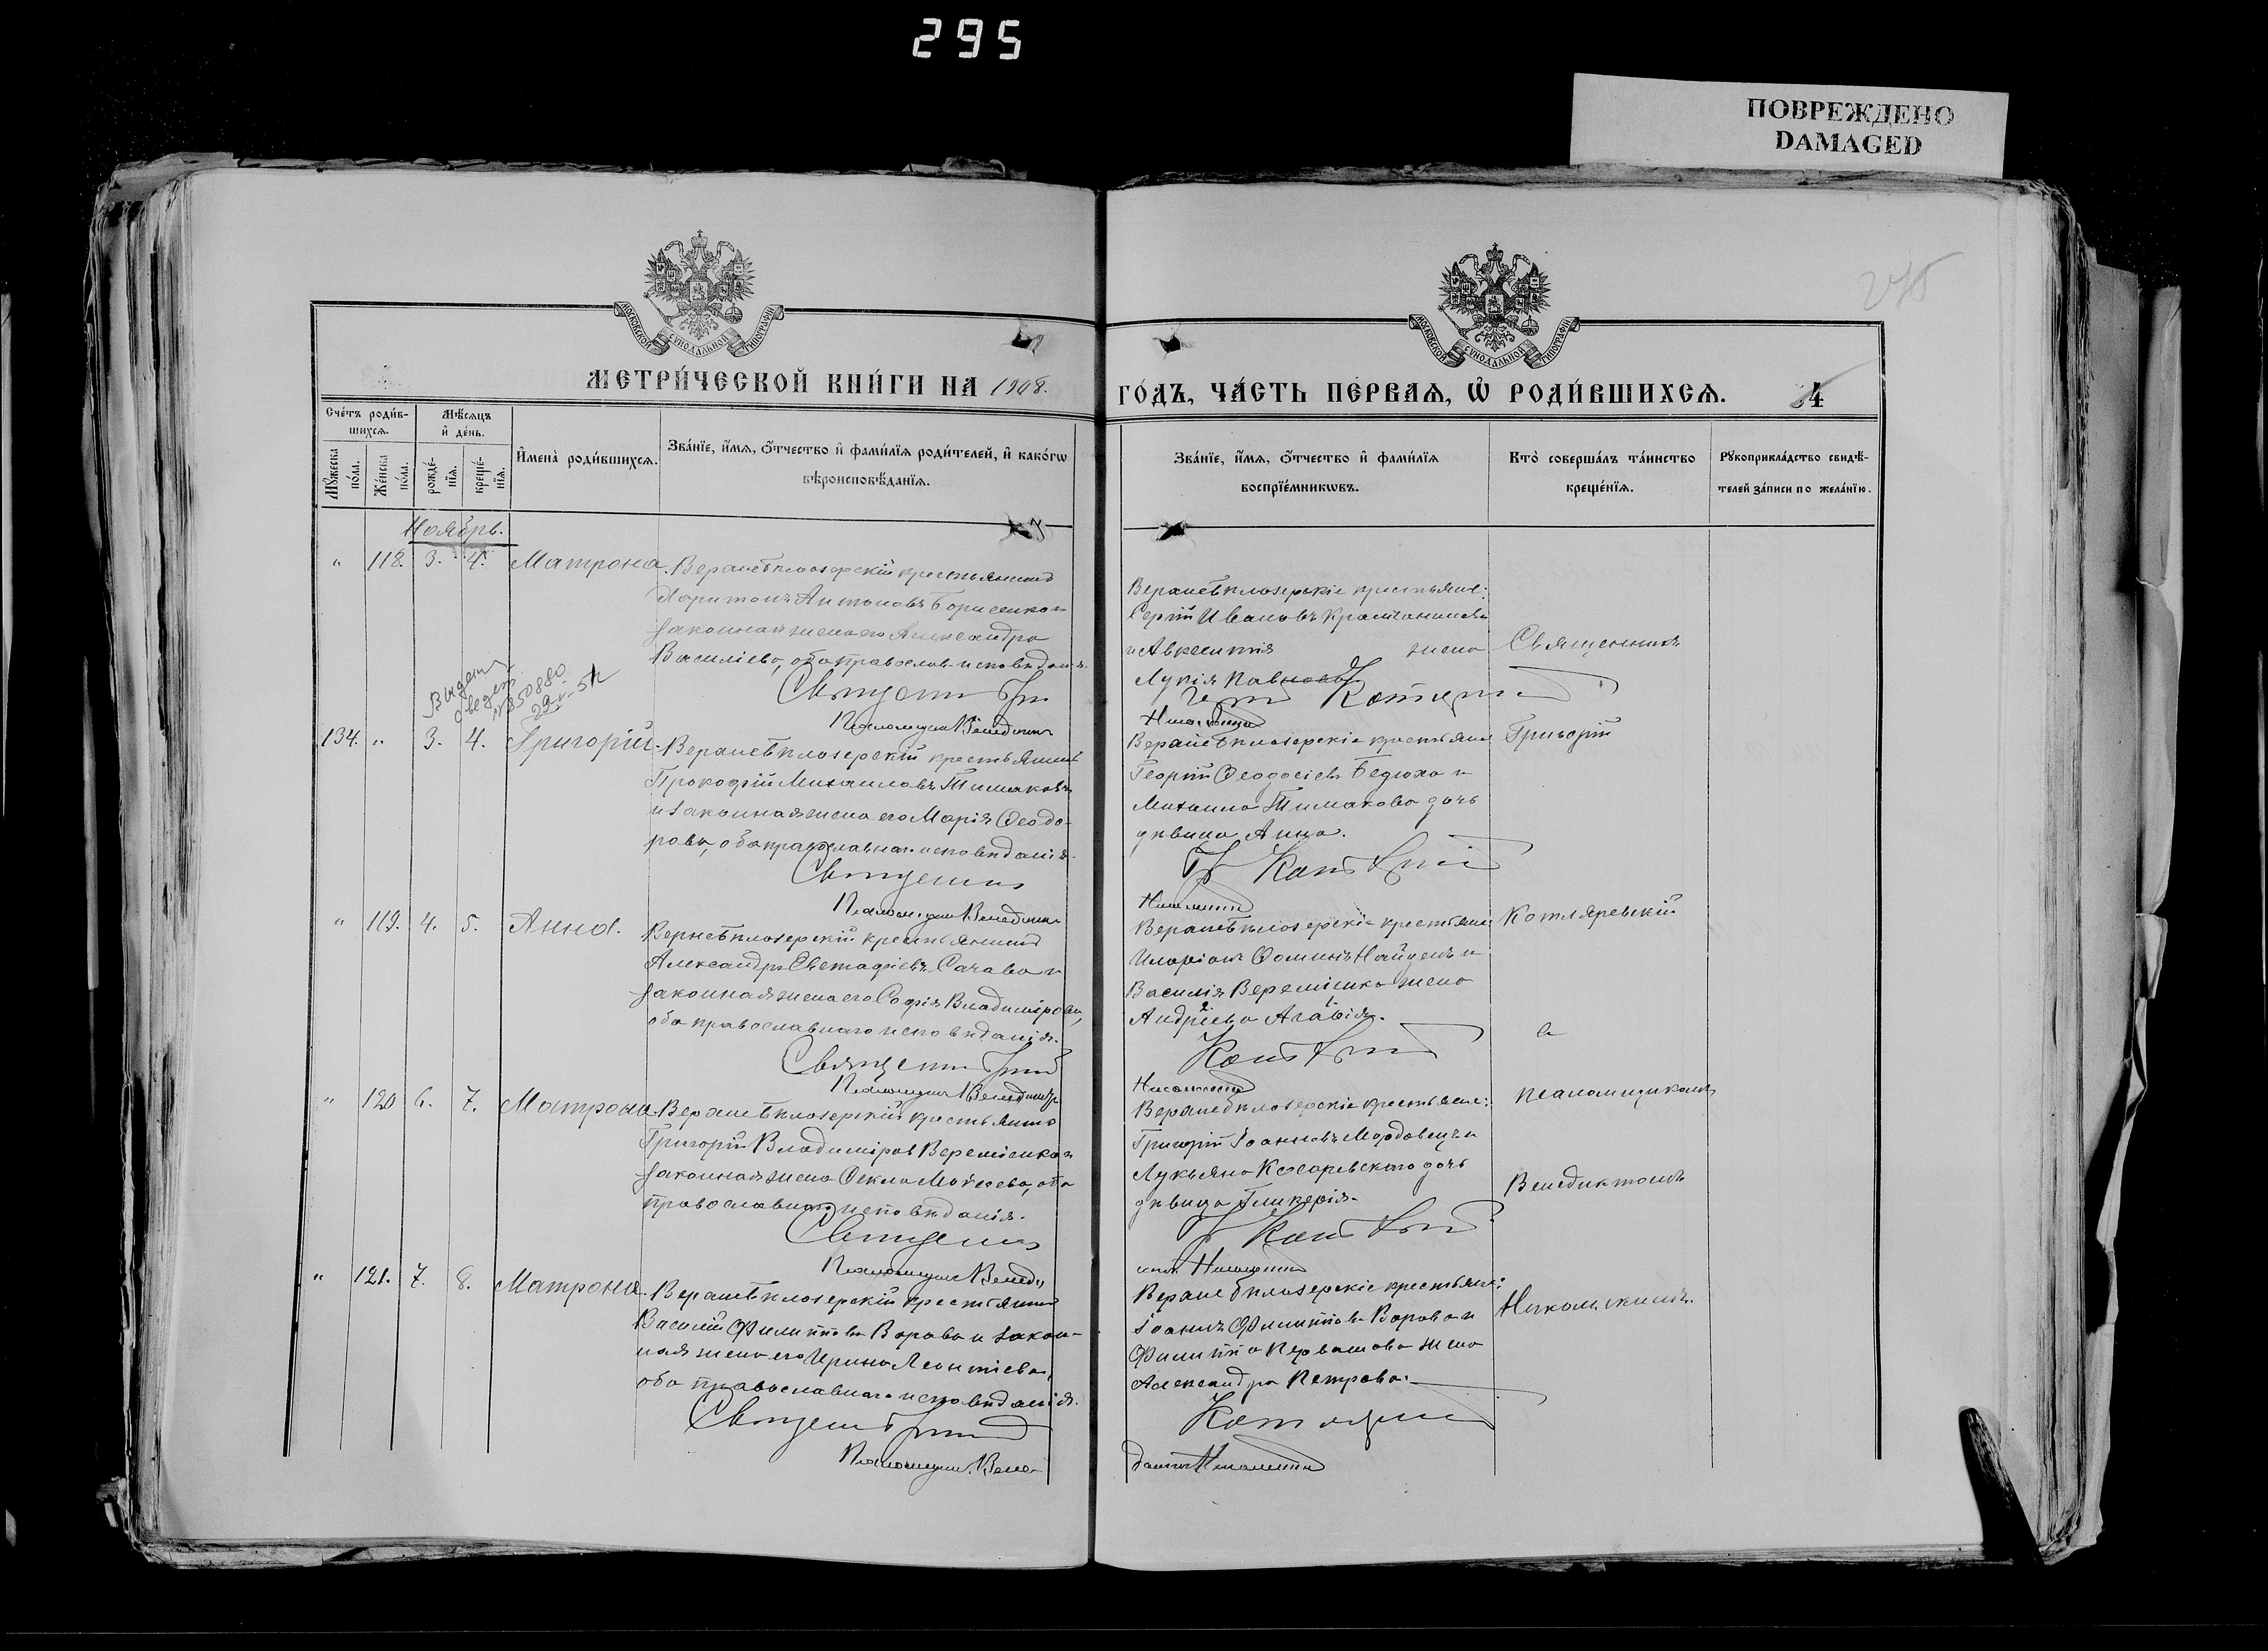 295
ПОВРЕЖДЕНО
DAMAGED
275
МОСКОВСКОЙ СѴНОДАЛЬНОЙ ТИПОГРАФІИ
МОСКОВСКОЙ СѴНОДАЛЬНОЙ ТИПОГРАФІИ
МЕТРИ́ЧЕСКОЙ КНИ́ГИ НА 1908.
ГО́ДЪ, ЧА́СТЬ ПЕ́РВАѦ, Ѡ҆ РОДИ́ВШИХСѦ. 4
Сче́тъ роди́в-
шихсѧ.
Мꙋ́жеска по́ла.
Же́нска по́ла.
Мѣ́сѧцъ
и҆ де́нь.
рожде́-
нїѧ.
креще́-
нїѧ.
И҆мена̀ роди́вшихсѧ.
Зва́нїе, и҆́мѧ, ѻ҆́тчество и҆ фами́лїѧ роди́телей, и҆ како́гѡ
вѣроисповѣ́данїѧ.
Зва́нїе, и҆́мѧ, ѻ҆́тчество и҆ фами́лїѧ
воспрїе́мникѡвъ.
Кто̀ соверша́лъ та́инство
креще́нїѧ.
Рꙋкоприкла́дство свидѣ́-
телей за́писи по жела́нїю.
Ноябрь.
" 118. 3. 4. Матрона.
Верхнебѣлозерскій крестьянинъ
Харитонъ Антоновъ Борисенко и
законная жена его Александра
Василіева, оба правосл. исповѣданія.
Священ
Псаломщикъ Венедиктъ
Верхнебѣлозерскіе крестьяне:
Сергій Ивановъ
и Авксентія жена
Лукія
Никольскій
Священникъ
Выдан
свидет
№ 850880.
134. " 3. 4. Григорій.
Верхнебѣлозерскій крестьянинъ
Прокофій Михаиловъ Тимаковъ
и законная жена его Марія Ѳеодо-
рова, оба православнаго исповѣданія.
Священник
Псаломщикъ Венедиктъ
Верхнебѣлозерскіе крестьяне
Георгій Ѳеодосіевъ Бедюха и
Михаила Тимакова дочь
дѣвица Анна.
Григорій
" 119. 4. 5. Анна.
Вернебѣлозерскій крестьянинъ
Александръ Евстафіевъ Сачава и
законная жена его Софія Владимірова,
оба православнаго исповѣданія.
Священ
Псаломщикъ Венедиктъ
Верхнебѣлозерскіе крестьяне
Иларіонъ Ѳоминъ Найденъ и
Василія Веремѣенко жена
Андрієва Агавія.
Котляревскій
с
" 120 6. 7. Матрона
Верхнебѣлозерскій крестьянинъ
Григорій Владиміровъ Веремѣенко и
законная жена Ѳекла Моисеева, оба
православнаго исповѣданія.
Священник
Псаломщикъ Венед
Верхнебѣлозерскіе крестьяне:
Григорій Іоанновъ Мордовецъ и
Лукьяна Косаревскаго дочь
дѣвица Гликерія.
псаломщикомъ
Венедиктомъ
" 121. 7. 8. Матрона.
Верхнебѣлозерскій крестьянинъ
Василій Филипповъ Ворова и закон-
ная жена его Ирина Леонтіева,
оба православнаго исповѣданія.
Священ
Псаломщикъ Вене-
Верхнебѣлозерскіе крестьяне:
Іоаннъ Филипповъ Ворова и
Филиппа Первашова жена
Александра Петрова.
диктъ Никольскій
Никольскимъ.